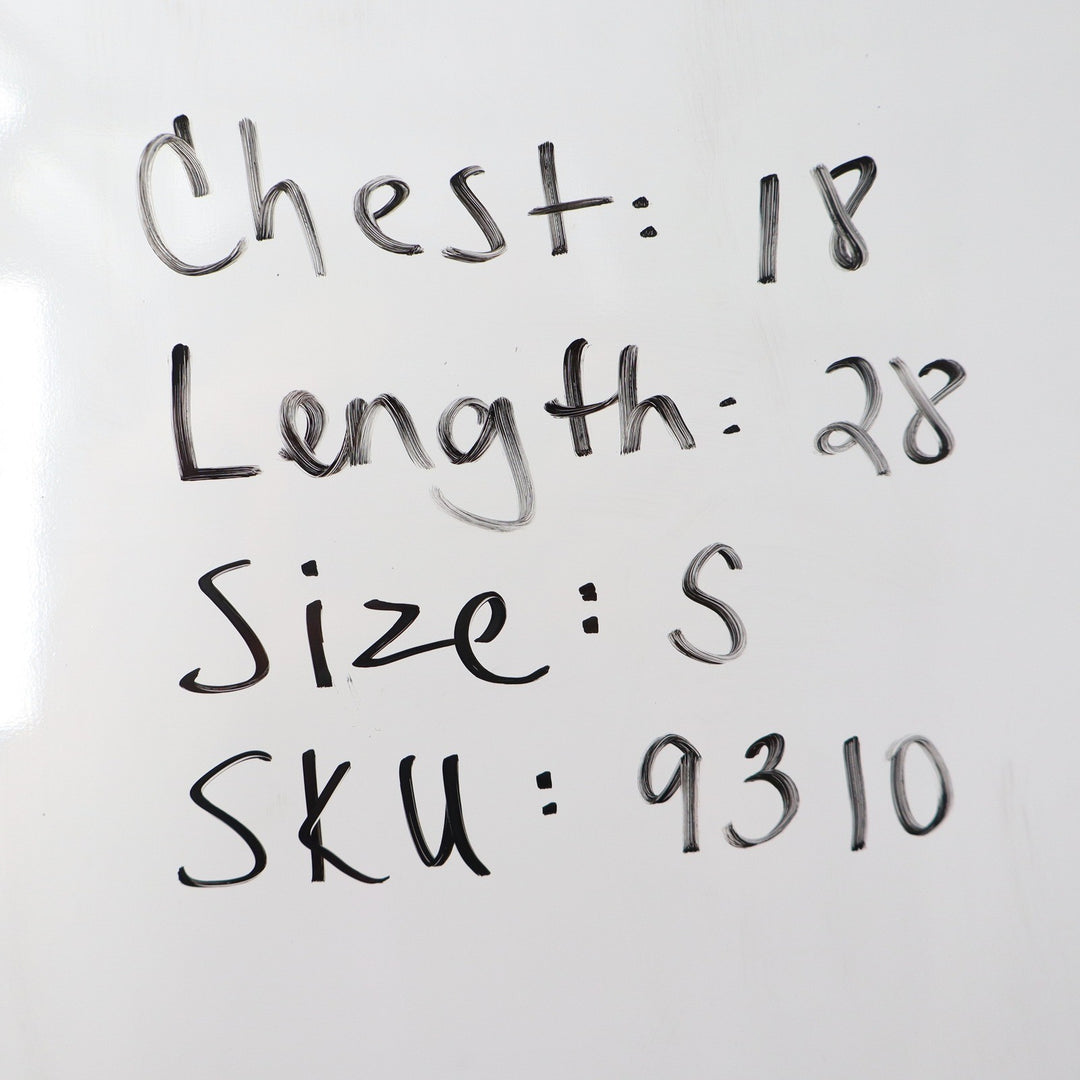 Chest: 18
Length: 28
Size: S
SKU: 9310